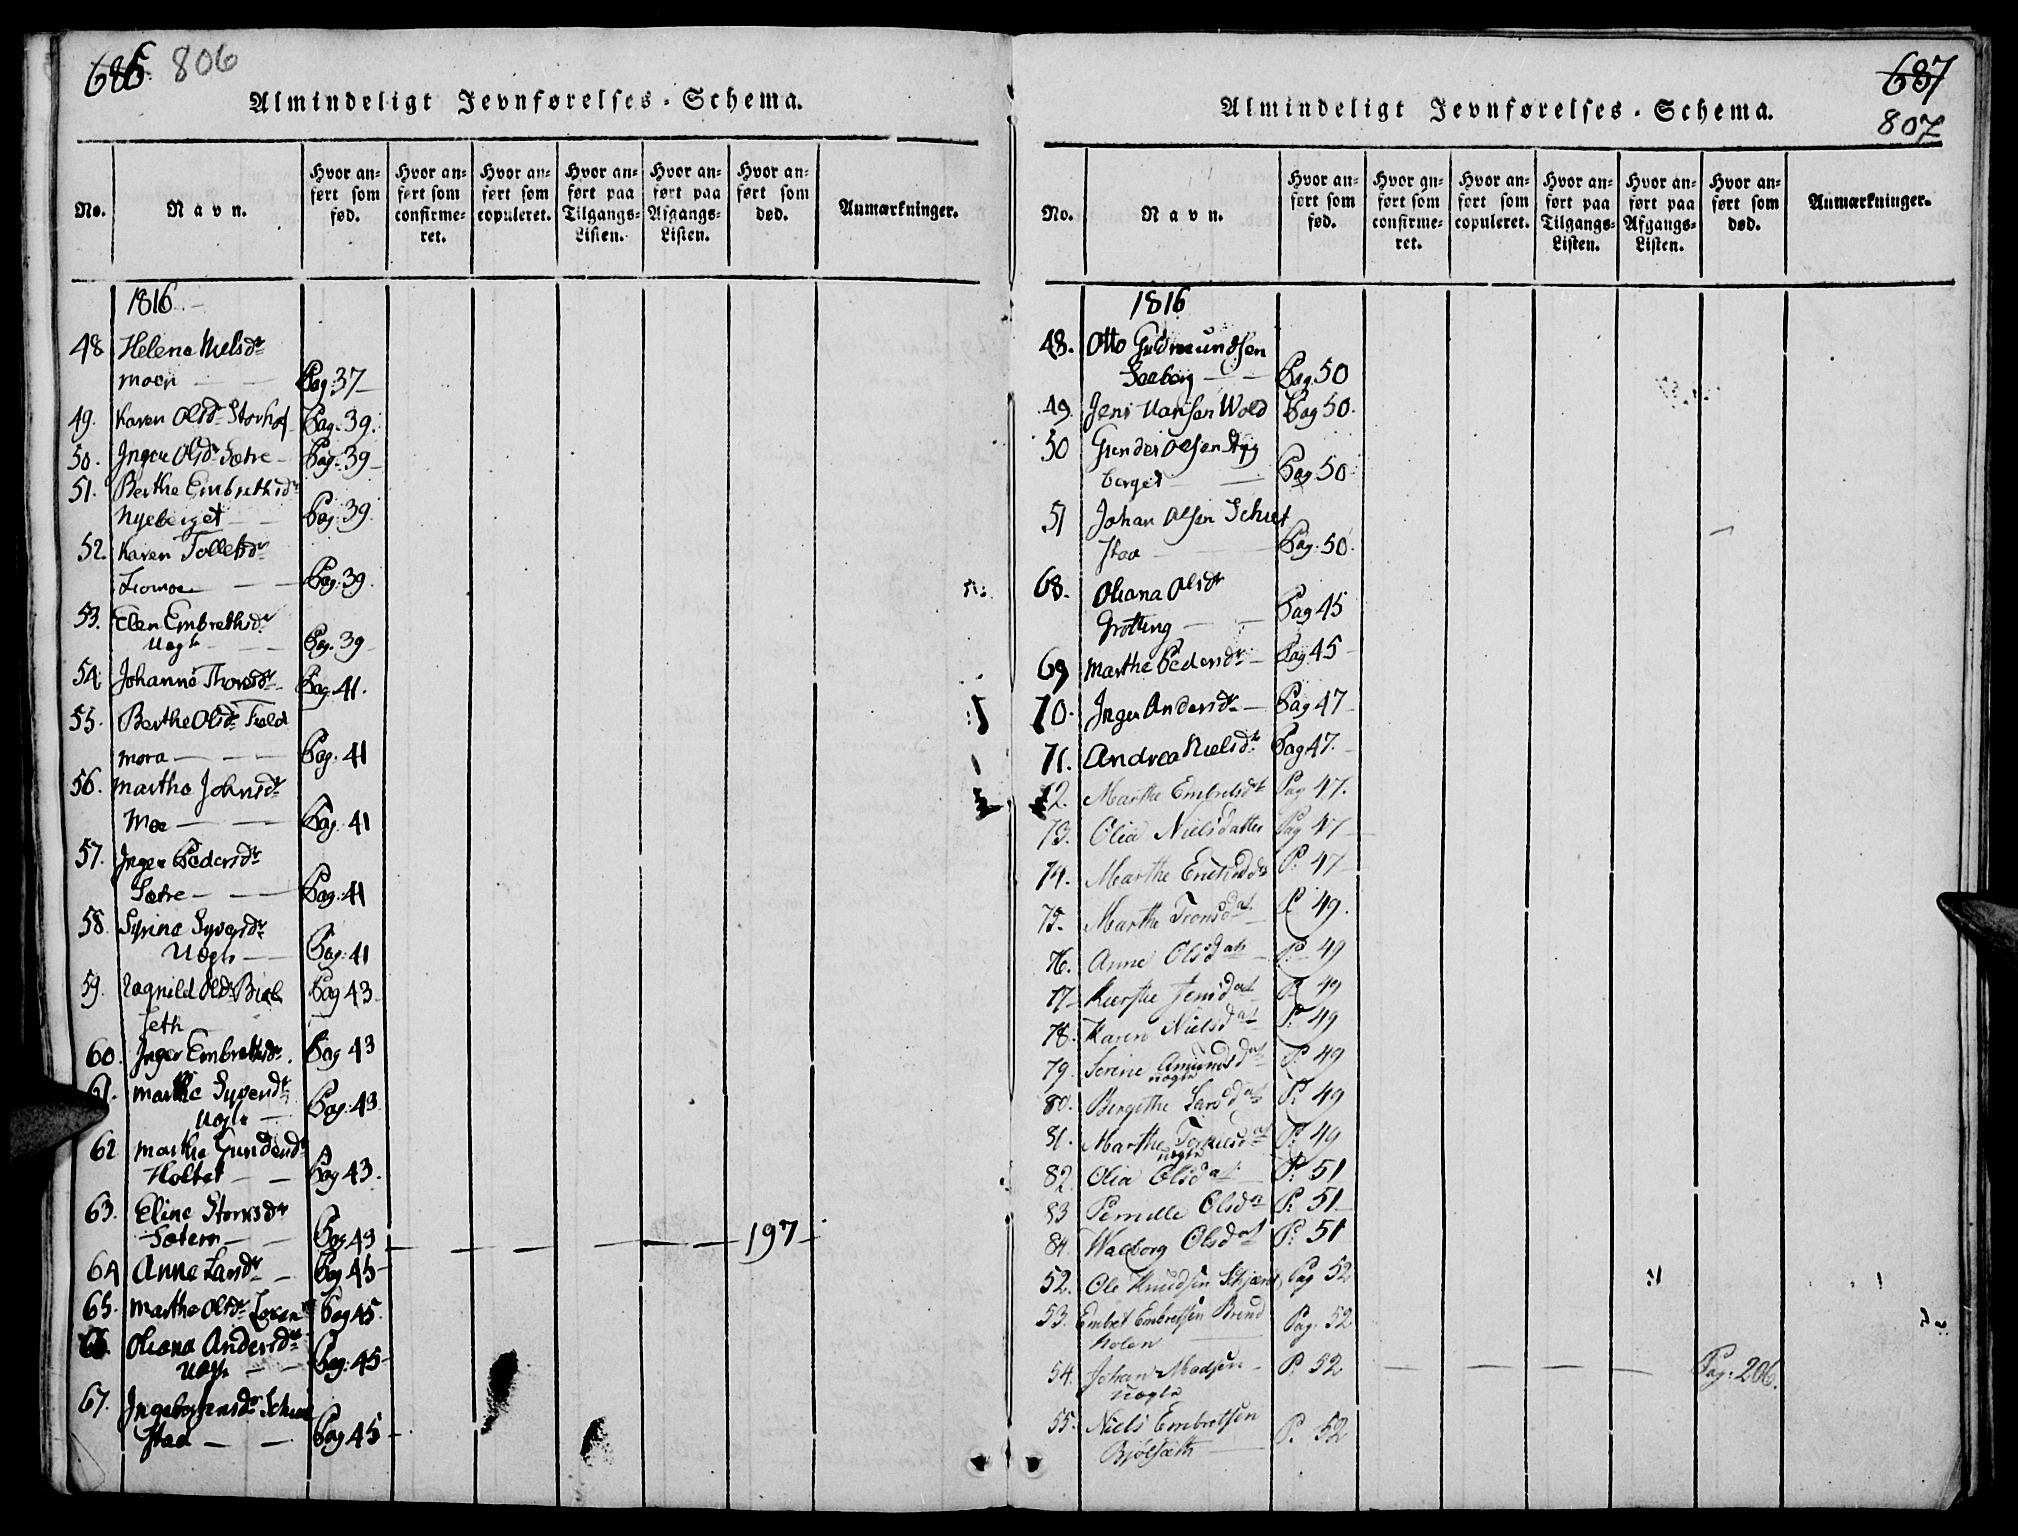 686 806
Almindeligt Jevnførelses-Schema.
No. Navn. Hvor anført som fød. Hvor anført som confirmeret. Hvor anført som copuleret. Hvor anført paa Tilgangs-Listen. Hvor anført paa Afgangs-Listen. Hvor anført som død. Anmærkninger.
1816
48 Helene Nielsdr
moen Pag: 37
49. Karen Olsdr Storhof Pag. 39.
50. Inger Olsdr Sætre Pag: 39
51. Berthe Embrethsdr
Nyeberget Pag: 39
52. Karen Tollefsdr
Pag: 39.
53. Elen Embrethsdr
Uægte Pag. 39
54 Johanne Thorsdr Pag. 41.
55. Berthe Olsdr Field
mora Pag. 41
56. Marthe Johnsdr
Moe Pag. 41
57. Inger Pedersdr
Sætre Pag: 41
58. Syrine Syversdr
Uægte Pag: 41
59. Ragnild Olsdr Biøl
seth Pag 43
60. Inger Embrethsdr. Pag 43
61. Marthe Syversdr
Uægte Pag: 43
62 Marthe Gundersdr
Holtet Pag 43.
63. Eline Storksdr
Sætern Pag 43 197
64 Anne Larsdr Pag 45
65. Marthe Olsdr Pag 45.
66. Oliana Andersdr
Uægte Pag: 45
67. Ingeborg Jensdr Schie
stad Pag 45
687
807
Almindeligt Jevnførelses-Schema.
No. Navn. Hvor anført som fød. Hvor anført som confirmeret. Hvor anført som copuleret. Hvor anført paa Tilgangs-Listen. Hvor anført paa Afgangs-Listen. Hvor anført som død. Anmærkninger.
1816
48. Otto Gudmundsen
Seeberg Pag. 50
49. Jens Hansen Wold Pag 50.
50 Gunder Olsen Nyy
berget Pag 50
51 Johan Olsen Schie
stad Pag. 50.
68. Oliana Olsdr
Grøtting Pag 45
69 Marthe Pedersdr Pag 45
70. Inger Andersdr Pag 47
71. Andrea Nielsdr Pag 47.
72. Marthe Embretsdr Pag 47.
73. Olia Nielsdatter Pag 47
74. Marthe Erichsdr P. 47
75. Marthe Tronsdat P. 49.
76. Anne Olsdat P. 49
77 Kierstie Jensdat P. 49
78. Karen Nielsdat P. 49
79. Serine Amundsdat P. 49
uægte
80. Bergethe Larsdat P. 49
81. Marthe Torkilsdat P. 49
uægte
82. Olia Olsdat P. 51
83 Pernille Olsdat P. 51
84. Waeborg Olsdat P. 51
52. Ole Knudsen Pag 52
53. Embret Embretsen Brend
holen Pag. 52
54. Johan Madsen P. 52 Pag. 206.
uægte
55. Niels Embretsen
Bjølsæth P. 52